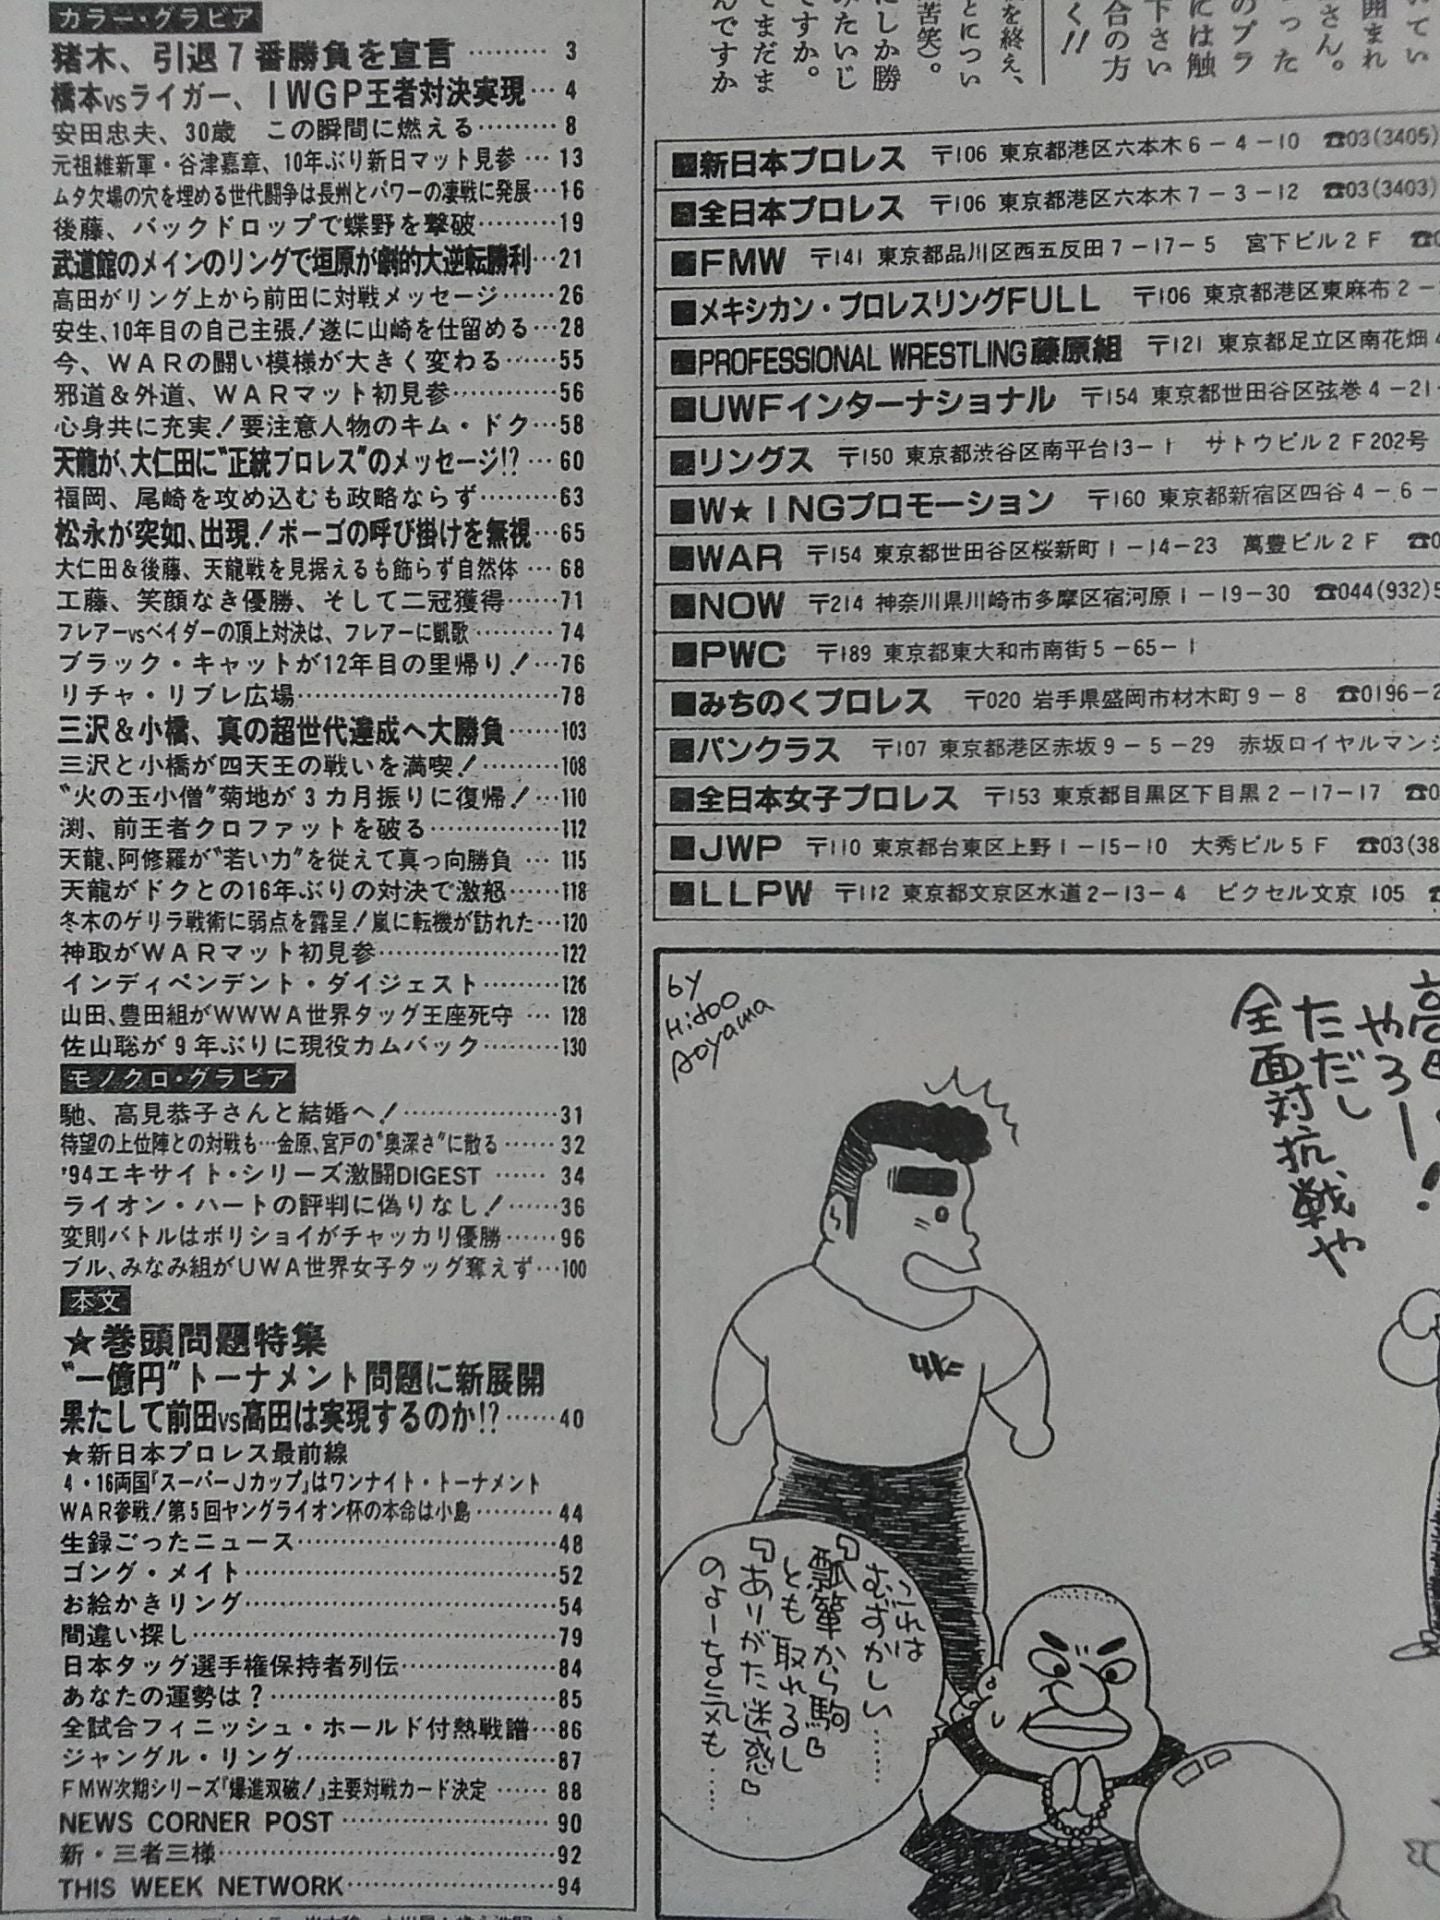 カラー・グラビア
猪木、引退7番勝負を宣言………3
橋本vsライガー、IWGP王者対決実現…4
安田忠夫、30歳 この瞬間に燃える………8
元祖維新軍・谷津嘉章、10年ぶり新日マット見参…13
ムタ欠場の穴を埋める世代闘争は長州とパワーの凄戦に発展…16
後藤、バックドロップで蝶野を撃破………19
武道館のメインのリングで垣原が劇的大逆転勝利…21
高田がリング上から前田に対戦メッセージ……26
安生、10年目の自己主張!遂に山崎を仕留める…28
今、WARの闘い模様が大きく変わる……55
邪道&外道、WARマット初見参…………56
心身共に充実!要注意人物のキム・ドク…58
天龍が、大仁田に"正統プロレス"のメッセージ!?…60
福岡、尾崎を攻め込むも政略ならず………63
松永が突如、出現!ボーゴの呼び掛けを無視…65
大仁田&後藤、天龍戦を見据えるも飾らず自然体…68
工藤、笑顔なき優勝、そして二冠獲得……71
フレアーvsベイダーの頂上対決は、フレアーに凱歌………74
ブラック・キャットが12年目の里帰り!…76
リチャ・リブレ広場…………………………78
三沢&小橋、真の超世代達成へ大勝負……103
三沢と小橋が四天王の戦いを満喫!………108
"火の玉小僧"菊地が3カ月振りに復帰!…110
渕、前王者クロファットを破る……………112
天龍、阿修羅が"若い力"を従えて真っ向勝負…115
天龍がドクとの16年ぶりの対決で激怒……118
冬木のゲリラ戦術に弱点を露呈!嵐に転機が訪れた…120
神取がWARマット初見参…………………122
インディペンデント・ダイジェスト………126
山田、豊田組がWWWA世界タッグ王座死守…128
佐山聡が9年ぶりに現役カムバック………130
モノクロ・グラビア
馳、高見恭子さんと結婚へ!………………31
待望の上位陣との対戦も…金原、宮戸の"奥深さ"に散る……32
'94エキサイト・シリーズ激闘DIGEST……34
ライオン・ハートの評判に偽りなし!……36
変則バトルはボリショイがチャッカリ優勝……96
ブル、みなみ組がUWA世界女子タッグ奪えず…100
本文
★巻頭問題特集
"一億円"トーナメント問題に新展開
果たして前田vs高田は実現するのか!?……40
★新日本プロレス最前線
4・16両国『スーパーJカップ』はワンナイト・トーナメント
WAR参戦!第5回ヤングライオン杯の本命は小島………44
生録ごったニュース…………………………48
ゴング・メイト………………………………52
お絵かきリング………………………………54
間違い探し……………………………………79
日本タッグ選手権保持者列伝………………84
あなたの運勢は?……………………………85
全試合フィニッシュ・ホールド付熱戦譜…86
ジャングル・リング…………………………87
FMW次期シリーズ『爆進双破!』主要対戦カード決定……88
NEWS CORNER POST……………………90
新・三者三様…………………………………92
THIS WEEK NETWORK……………………94
を終え、
とについ
苦笑)。
にしか勝
みたいじ
ですか。
てまだま
んですか
てい
囲まれ
さん。
った
のプラ
には触
下さい
合の方
く!!
■新日本プロレス 〒106 東京都港区六本木6-4-10 ☎03(3405)
■全日本プロレス 〒106 東京都港区六本木7-3-12 ☎03(3403)
■FMW 〒141 東京都品川区西五反田7-17-5 宮下ビル2F ☎0
■メキシカン・プロレスリングFULL 〒106 東京都港区東麻布2-
■PROFESSIONAL WRESTLING藤原組 〒121 東京都足立区南花畑4
■UWFインターナショナル 〒154 東京都世田谷区弦巻4-21-
■リングス 〒150 東京都渋谷区南平台13-1 サトウビル2F202号
■W★INGプロモーション 〒160 東京都新宿区四谷4-6-
■WAR 〒154 東京都世田谷区桜新町1-14-23 萬豊ビル2F ☎0
■NOW 〒214 神奈川県川崎市多摩区宿河原1-19-30 ☎044(932)5
■PWC 〒189 東京都東大和市南街5-65-1
■みちのくプロレス 〒020 岩手県盛岡市材木町9-8 ☎0196-2
■パンクラス 〒107 東京都港区赤坂9-5-29 赤坂ロイヤルマンシ
■全日本女子プロレス 〒153 東京都目黒区下目黒2-17-17 ☎0
■JWP 〒110 東京都台東区上野1-15-10 大秀ビル5F ☎03(38
■LLPW 〒112 東京都文京区水道2-13-4 ピクセル文京105 ☎
by
Hidoo
Aoyama
高田
やろー!
ただし
全面対抗戦や
これは
むずかしい……
『瓢箪から駒』
とも取れるし
『ありがた迷惑』
のよーな気も……